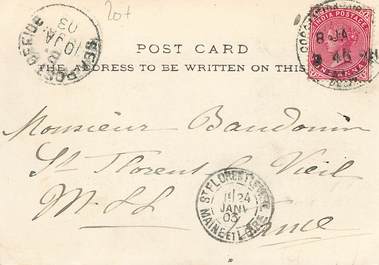 20+
SEA POST OFFICE
10 JA
03
INDIA POSTAGE
8 JA
POST CARD
THE ADDRESS TO BE WRITTEN ON THIS
Monsieur Baudouin
St Florent le Vieil
M. & L.
France
ST FLORENT LE VIEIL
24
JANV
03
MAINE ET LOIRE